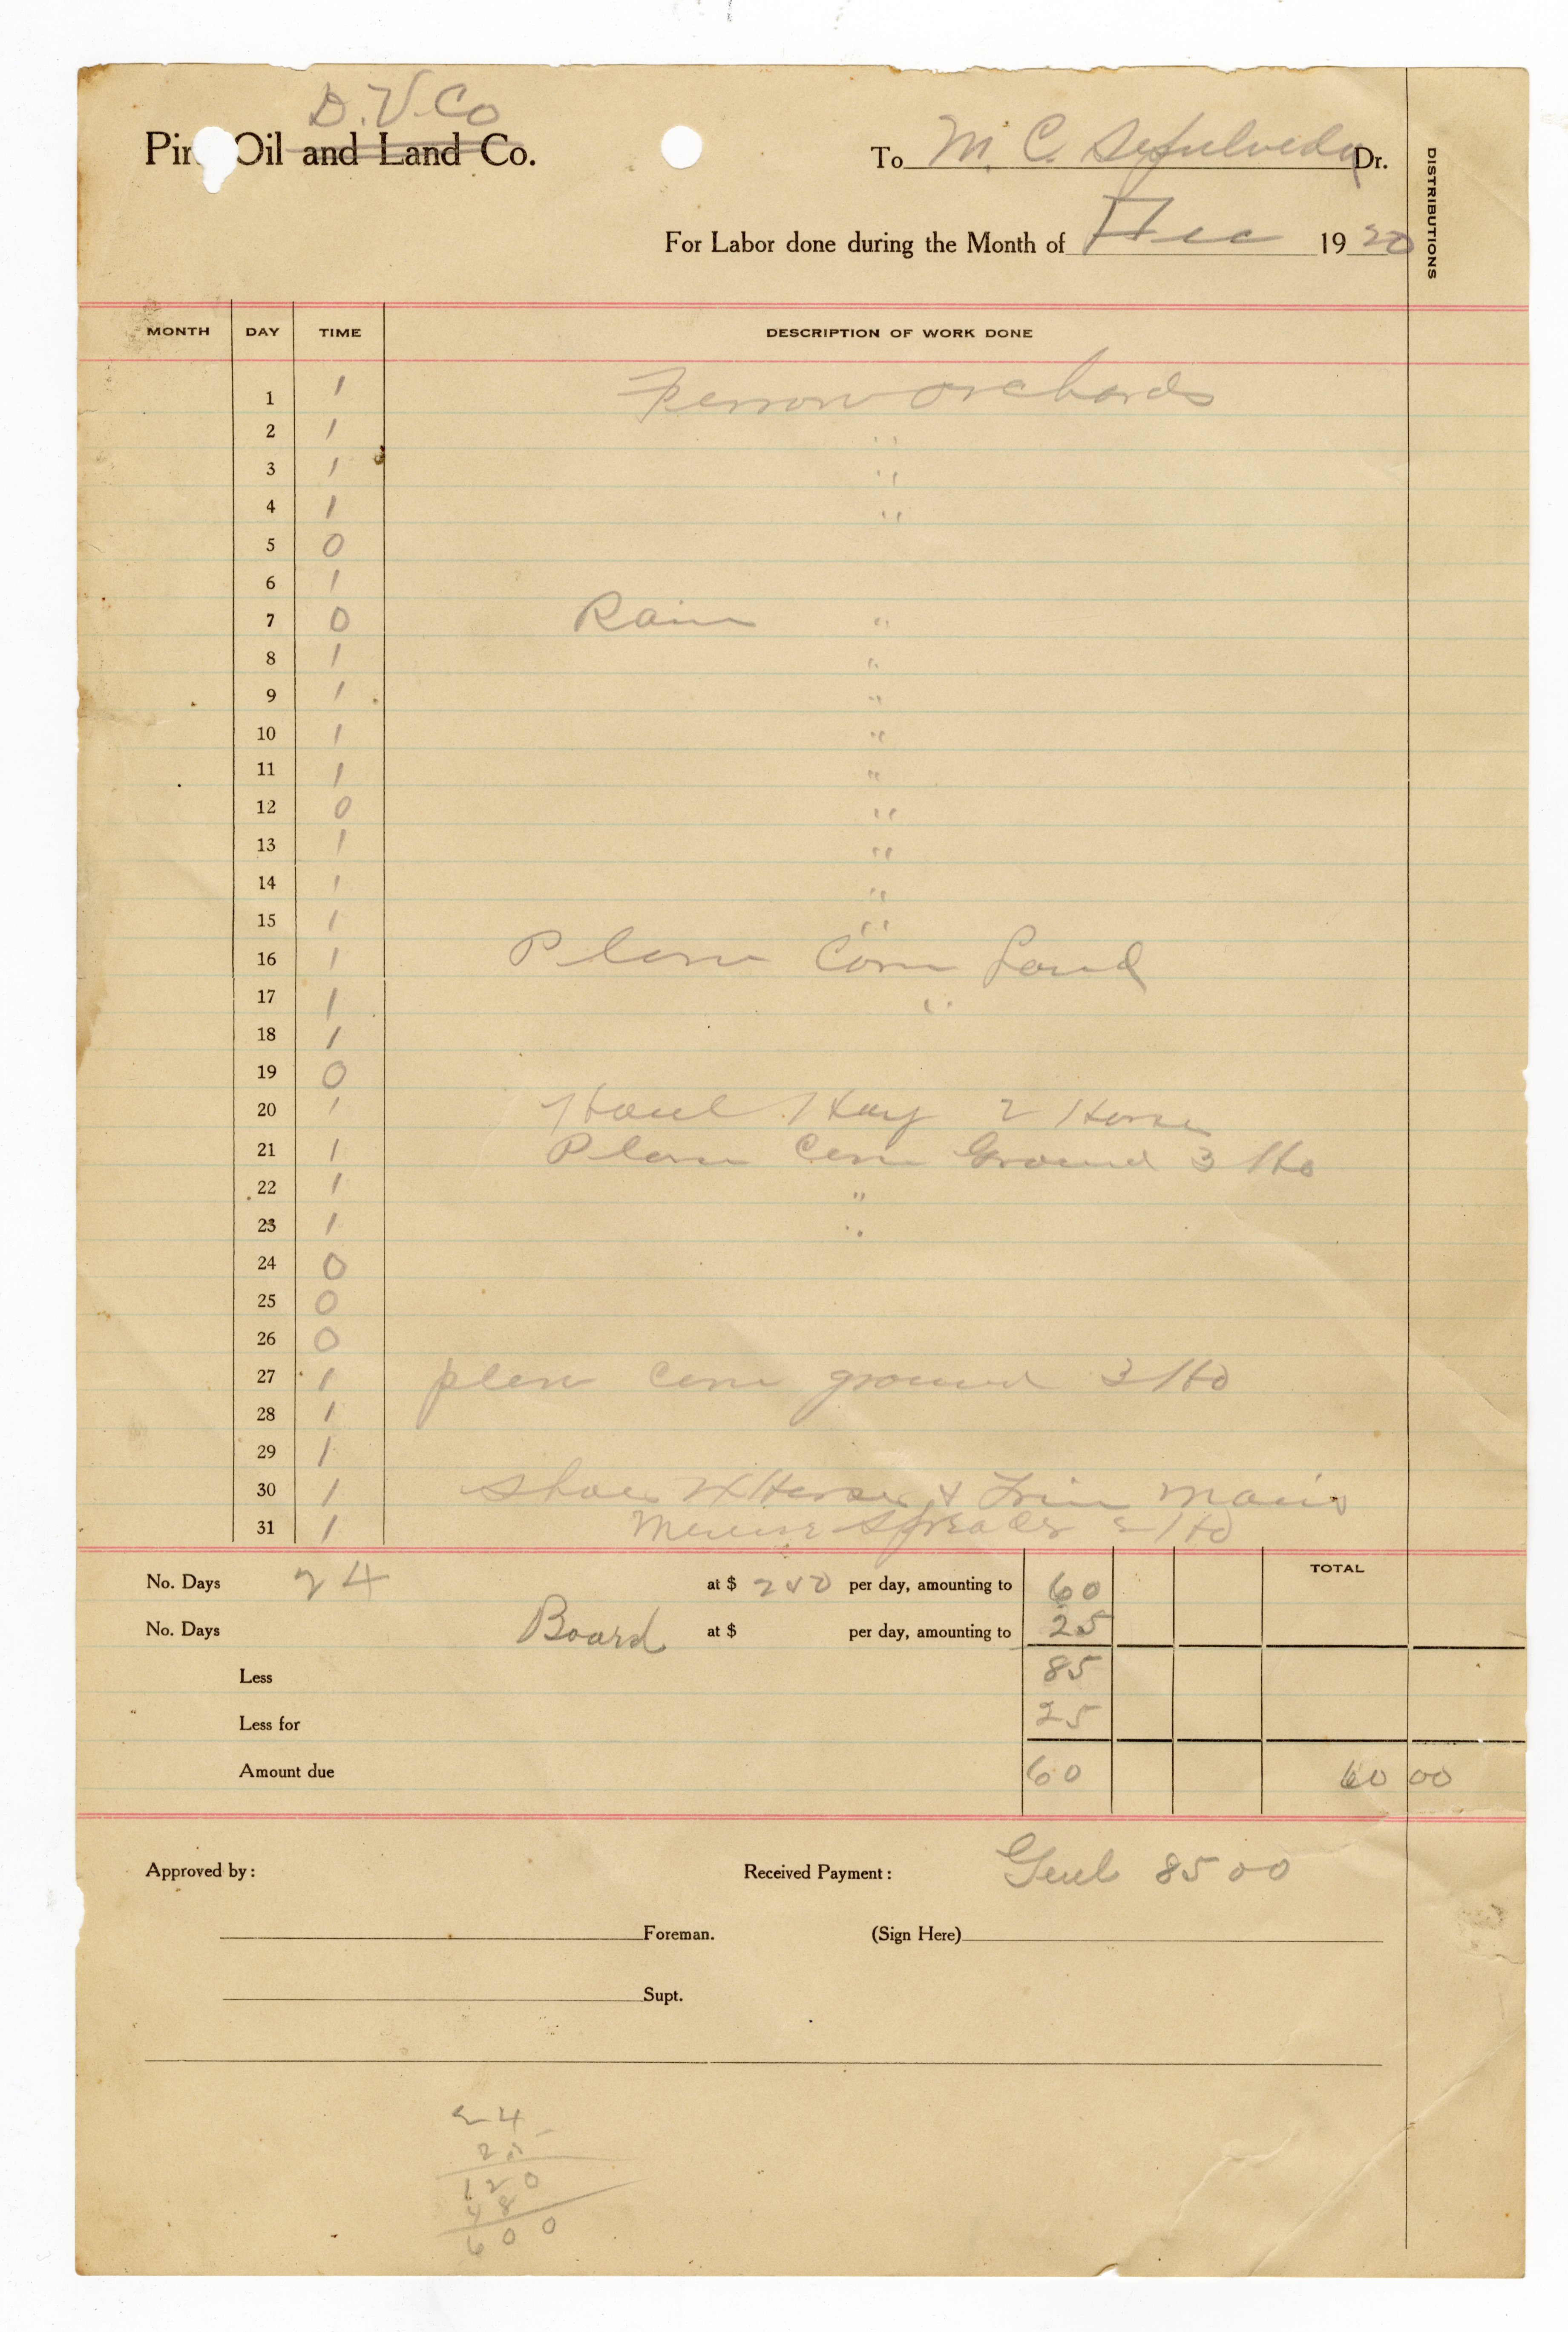 D.V. Co
Pin Oil and Land Co.
To M. C. Sepulveda Dr.
DISTRIBUTIONS
For Labor done during the Month of Dec 1920
MONTH DAY TIME DESCRIPTION OF WORK DONE
1 1 Ferrow orchards
2 1 "
3 1 "
4 1 "
5 0
6 1
7 0 Rain "
8 1 "
9 1 "
10 1 "
11 1 "
12 0 "
13 1 "
14 1 "
15 1 "
16 1 Plow Corn Land
17 1 "
18 1
19 0
20 1 Haul Hay 2 Horse
21 1 Plow Corn Ground 3 Ho
22 1 "
23 1 "
24 0
25 0
26 0
27 1 plow corn ground 3 Ho
28 1
29 1
30 1 Shoe Horses & Trim
31 1 Spreader 2 Ho
TOTAL
No. Days 24 at $ 250 per day, amounting to 60
No. Days Board at $ per day, amounting to 25
Less 85
Less for 25
Amount due 60 60 00
Approved by: Received Payment: 85 00
Foreman. (Sign Here)
Supt.
24
25
120
48
600